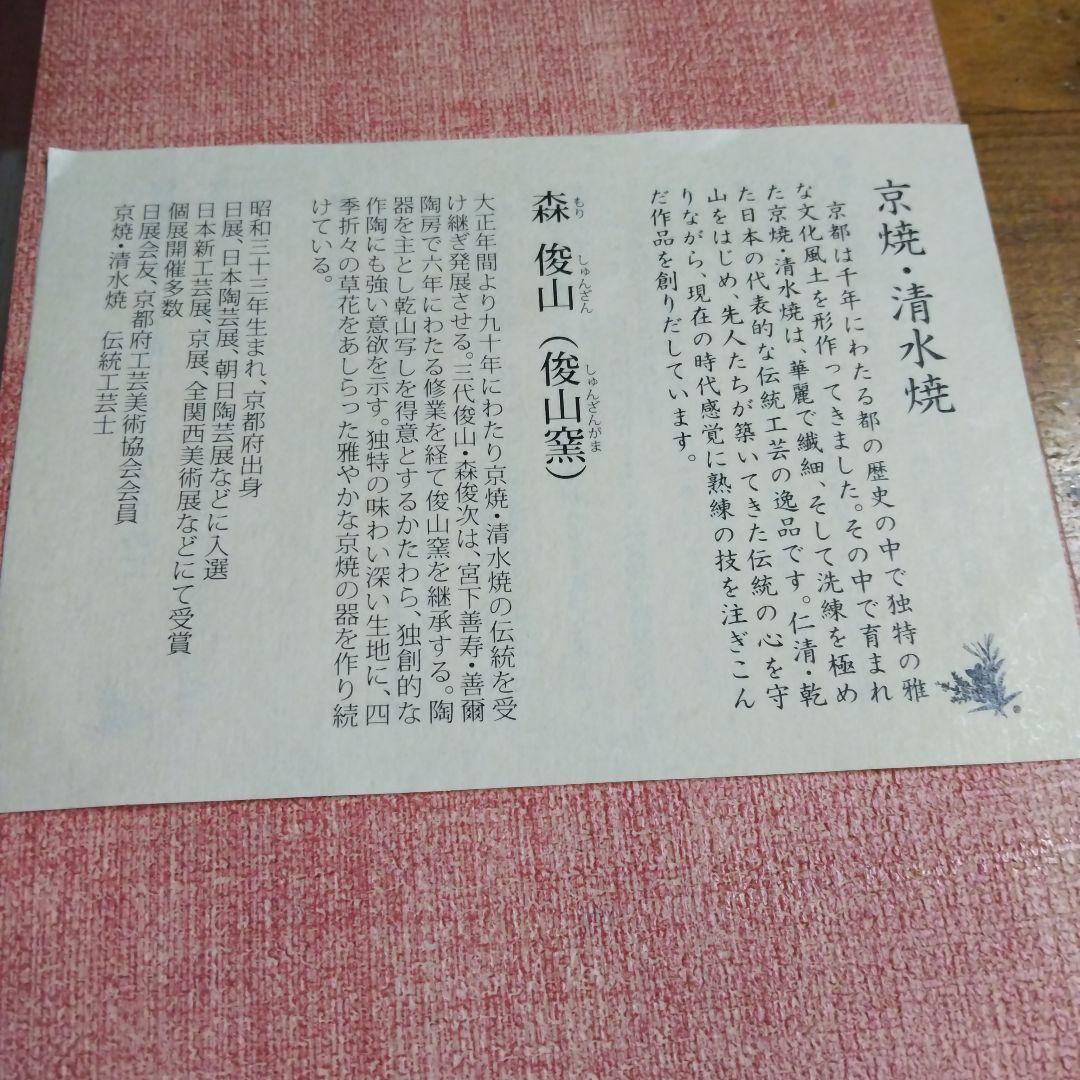 京焼・清水焼
京都は千年にわたる都の歴史の中で独特の雅
な文化風土を形作ってきました。その中で育まれ
た京焼・清水焼は、華麗で繊細、そして洗練を極め
た日本の代表的な伝統工芸の逸品です。仁清・乾
山をはじめ、先人たちが築いてきた伝統の心を守
りながら、現在の時代感覚に熟練の技を注ぎこん
だ作品を創りだしています。
もり しゅんざん しゅんざんがま
森 俊山(俊山窯)
大正年間より九十年にわたり京焼・清水焼の伝統を受
け継ぎ発展させる。三代俊山・森俊次は、宮下善寿・善爾
陶房で六年にわたる修業を経て俊山窯を継承する。陶
器を主とし乾山写しを得意とするかたわら、独創的な
作陶にも強い意欲を示す。独特の味わい深い生地に、四
季折々の草花をあしらった雅やかな京焼の器を作り続
けている。
昭和三十三年生まれ、京都府出身
日展、日本陶芸展、朝日陶芸展などに入選
日本新工芸展、京展、全関西美術展などにて受賞
個展開催多数
日展会友、京都府工芸美術協会会員
京焼・清水焼 伝統工芸士